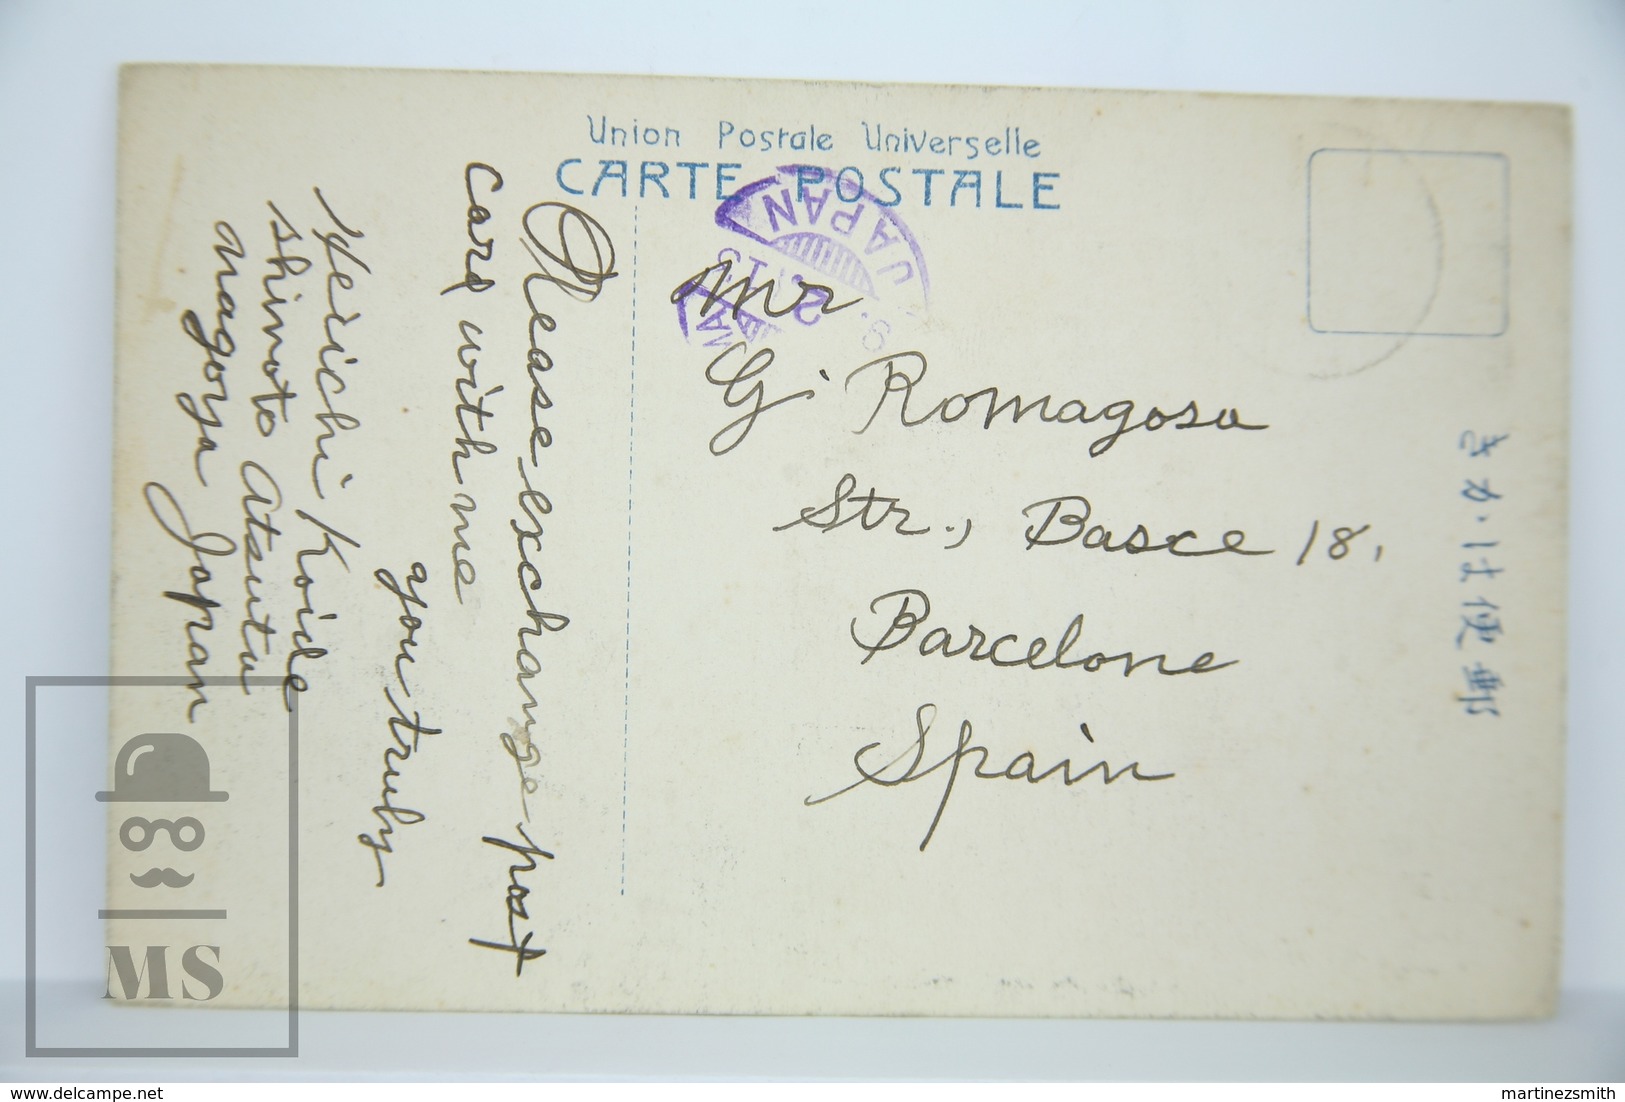 Union Postale Universelle
CARTE POSTALE
JAPAN
Please exchange post
card with me
you truly
Keiichi Koide
shimoto atsuta
nagoya Japan
Mr
G Romagosa
Str., Basce 18,
Barcelone
Spain
郵便はかき
MS
martinezsmith
www.delcampe.net